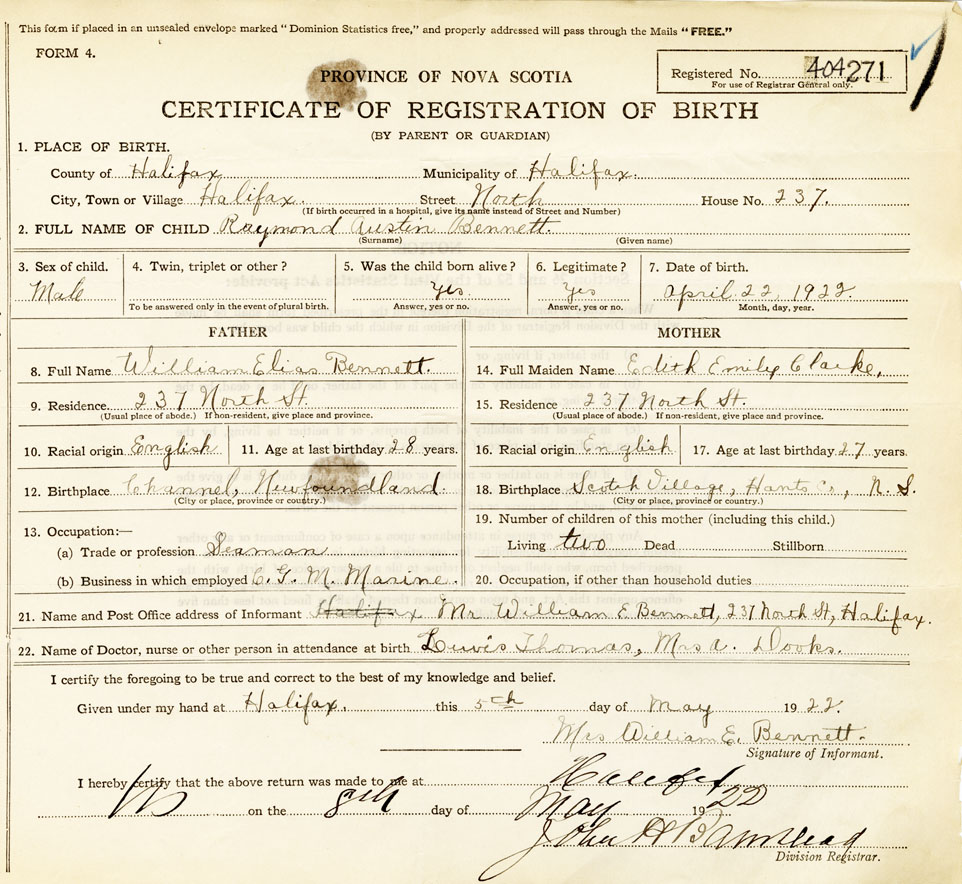 This form if placed in an unsealed envelope marked "Dominion Statistics free," and properly addressed will pass through the Mails "FREE."
FORM 4.
PROVINCE OF NOVA SCOTIA
Registered No. 404271
For use of Registrar General only.
CERTIFICATE OF REGISTRATION OF BIRTH
(BY PARENT OR GUARDIAN)
1. PLACE OF BIRTH.
County of Halifax Municipality of Halifax.
City, Town or Village Halifax. Street North House No. 237.
(If birth occurred in a hospital, give its name instead of Street and Number)
2. FULL NAME OF CHILD Raymond Austin Bennett.
(Surname) (Given name)
3. Sex of child. 4. Twin, triplet or other? 5. Was the child born alive? 6. Legitimate? 7. Date of birth.
Male yes. Yes April 22, 1922.
To be answered only in the event of plural birth. Answer, yes or no. Answer, yes or no. Month, day, year.
FATHER MOTHER
8. Full Name William Elias Bennett. 14. Full Maiden Name Edith Emily Clarke,
9. Residence. 237 North St. 15. Residence 237 North St.
(Usual place of abode.) If non-resident, give place and province. (Usual place of abode.) If non-resident, give place and province.
10. Racial origin English 11. Age at last birthday 28 years. 16. Racial origin English 17. Age at last birthday 27 years.
12. Birthplace Channel, Newfoundland 18. Birthplace Scotch Village, Hants Co, N. S.
(City or place, province or country.) (City or place, province or country.)
13. Occupation:— 19. Number of children of this mother (including this child.)
(a) Trade or profession Seaman Living two Dead Stillborn
(b) Business in which employed C. G. M. Marine. 20. Occupation, if other than household duties
21. Name and Post Office address of Informant Halifax Mr William E Bennett, 237 North St, Halifax.
22. Name of Doctor, nurse or other person in attendance at birth Lewis Thomas, Mrs A. Dooks.
I certify the foregoing to be true and correct to the best of my knowledge and belief.
Given under my hand at Halifax, this 5th day of May 1922.
Mrs William E. Bennett.
Signature of Informant.
I hereby certify that the above return was made to me at Halifax
on the 8th day of May 1922
John H Barnstead
Division Registrar.